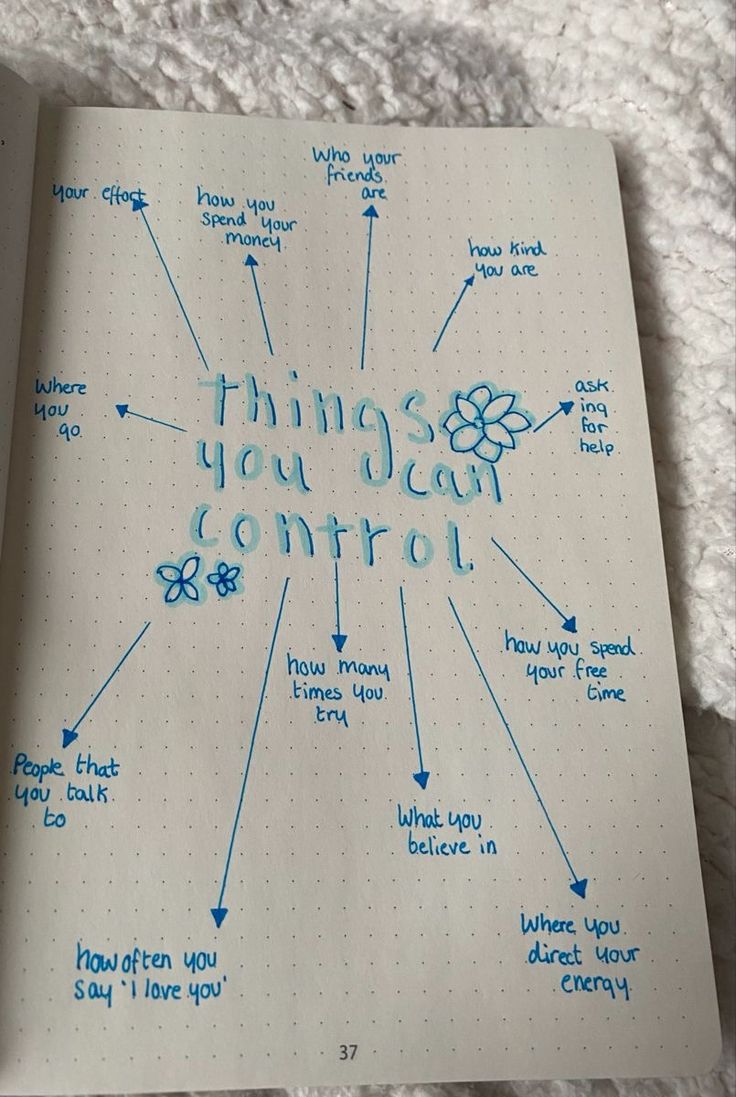 Who your
friends
are
your effort
how you
spend your
money
how kind
you are
Where
you
go
things
you can
control
ask
ing
for
help
how you spend
your free
time
how many
times you
try
People that
you talk
to
What you
believe in
Where you
direct your
energy
how often you
say 'I love you'
37